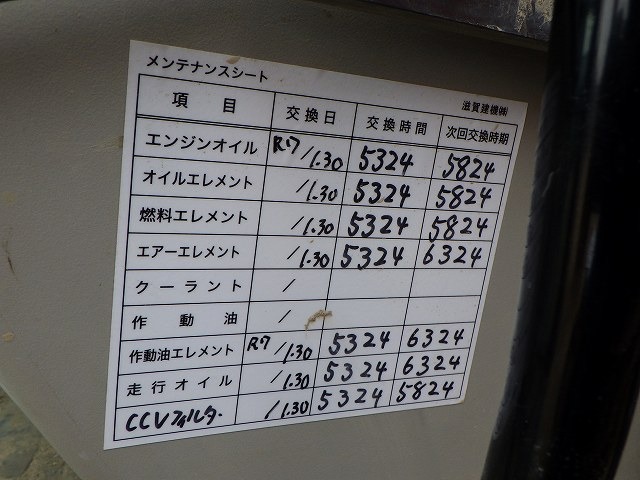 メンテナンスシート 滋賀建機㈱
項 目 交換日 交換時間 次回交換時期
エンジンオイル R7/1.30 5324 5824
オイルエレメント /1.30 5324 5824
燃料エレメント /1.30 5324 5824
エアーエレメント /1.30 5324 6324
クーラント /
作 動 油 /
作動油エレメント R7/1.30 5324 6324
走行オイル /1.30 5324 6324
CCVフィルター /1.30 5324 5824